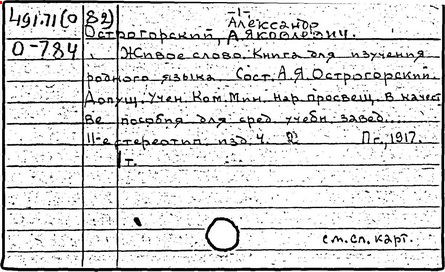 491.71(082)
-1-
Александр
Острогорский, А.Яковлевич.
О-784
Живое слово. Книга для изучения
родного языка. Сост. А.Я. Острогорский.
Допущ. Учен. Ком. Мин. нар. просвещ. в качест
ве пособия для сред. учебн. завед...
11-е стереотип. изд. Ч. 2 Пг., 1917.
1 т.
см. сл. карт.